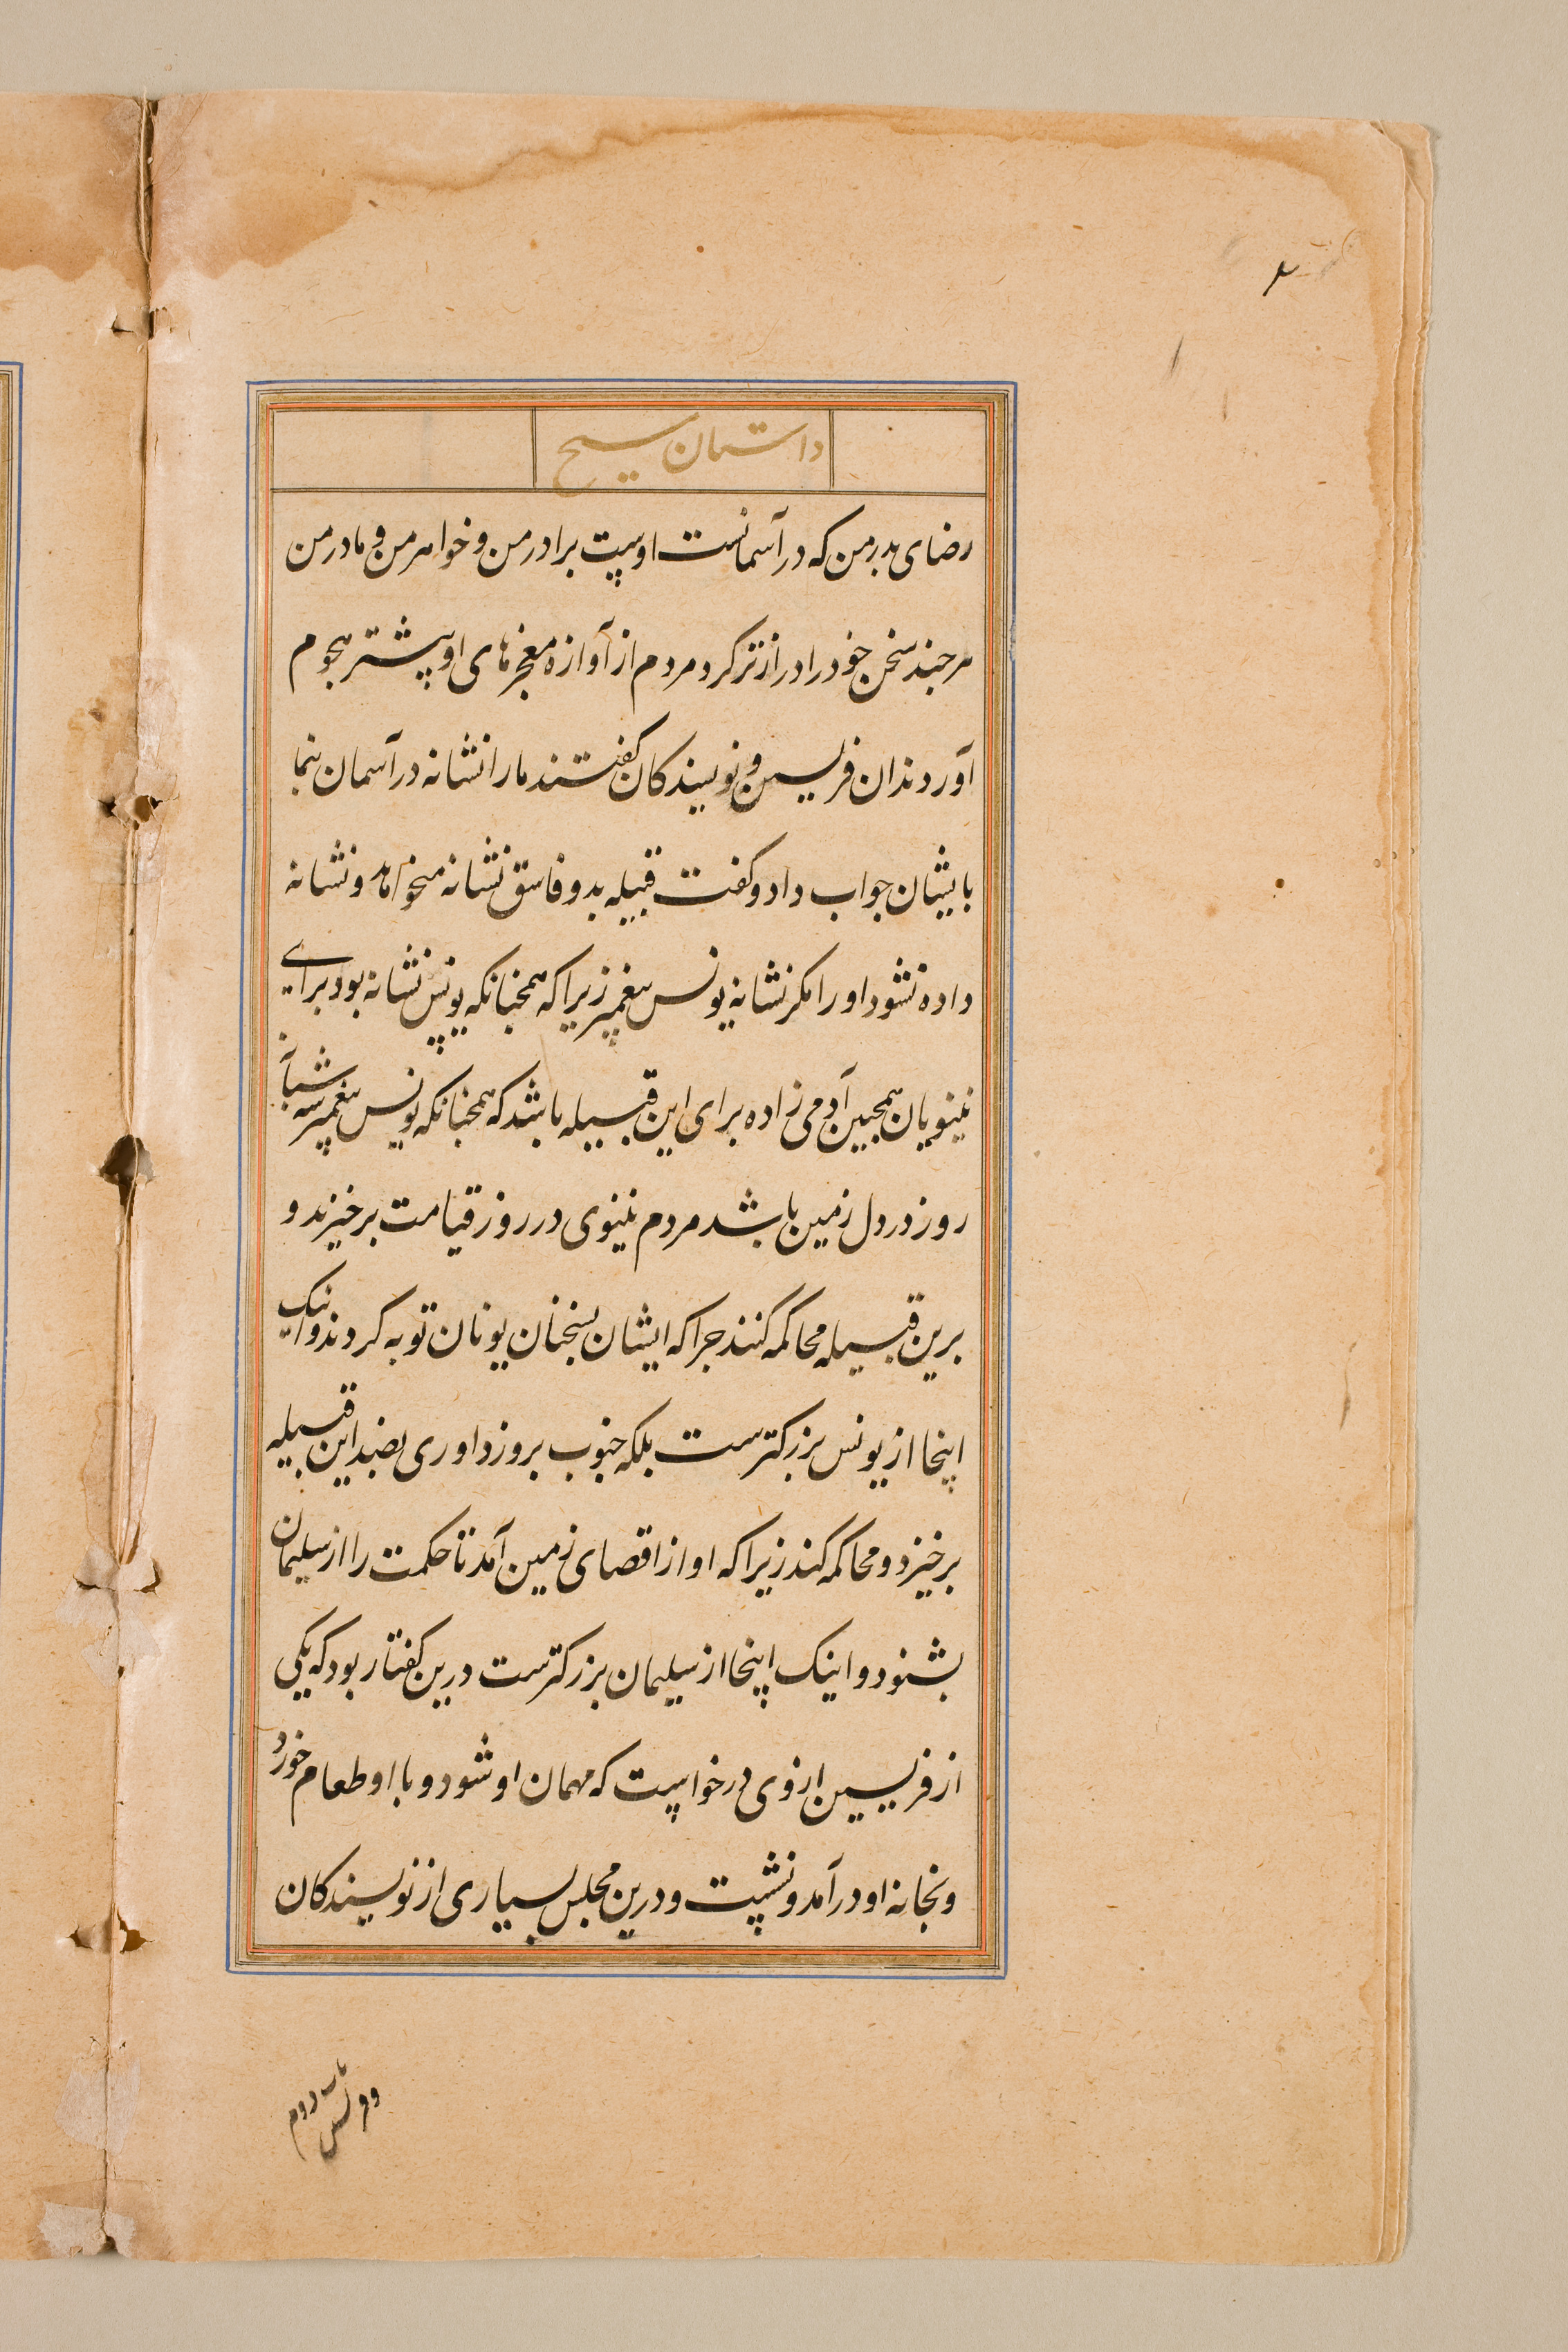 داستان مسیح
رضای پدر من که در آسمانست اوست برادر من و خواهر من و مادر من
هر چند سخن خود را درازتر کرد مردم از آوازه معجزهای او پیشتر هجوم
آوردندان فریسین و نویسندکان کفتند مارا نشانه در آسمان بنما
بایشان جواب داد و کفت قبیله بد و فاسق نشانه میخواهد و نشانه
داده نشود او را مکر نشانه یونس پیغمبر زیرا که همچنانکه یونس نشانه بود برای
نینویان همچنین آدمی زاده برای این قبیله باشد که همچنانکه یونس پیغمبر سه شبا
روز در دل زمین باشد مردم نینوی در روز قیامت برخیزند و
برین قبیله محاکمه کنند چرا که ایشان بسخنان یونان توبه کردند و اینک
اینجا از یونس بزرکترست بلکه جنوب بروز داوری بضد این قبیله
برخیزد و محاکمه کند زیرا که او از اقصای زمین آمد تا حکمت را از سلیمان
بشنود و اینک اینجا از سلیمان بزرکترست درین کفتار بود که یکی
از فریسین ازوی درخواست که مهمان او شود و با او طعام خورد
و بخانه او درآمد و نشست و درین مجلس بسیاری از نویسندکان